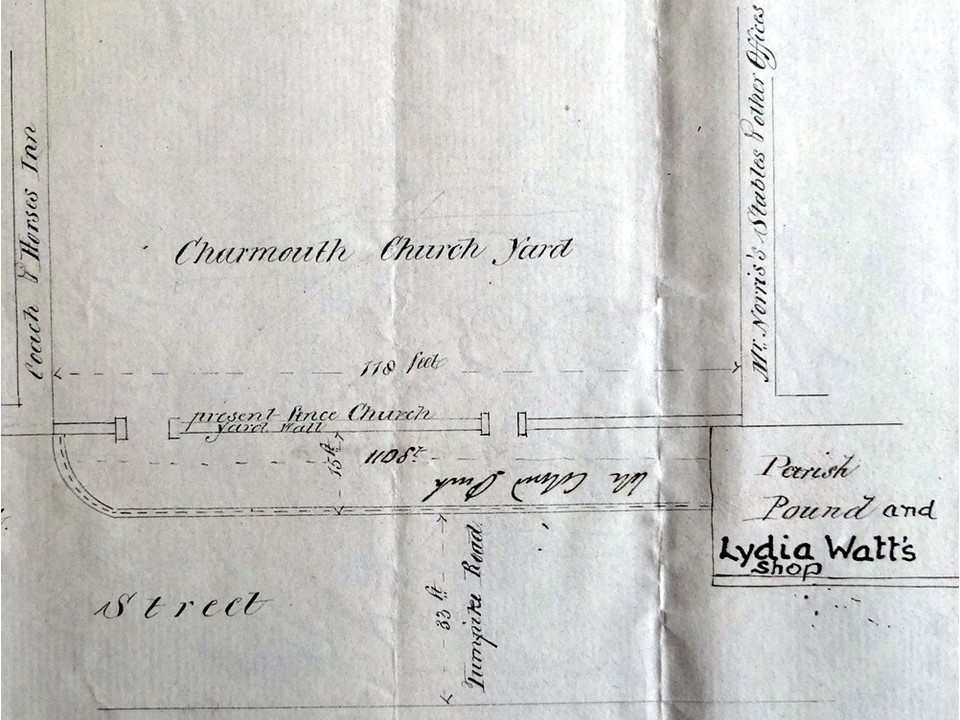 Coach & Horses Inn
Mr. Norris's Stables & other Offices
Charmouth Church Yard
118 feet
present fence Church
Yard Wall
15 ft
Parish
Pound and
Lydia Watt's
Shop
Street
33 ft
Turnpike Road